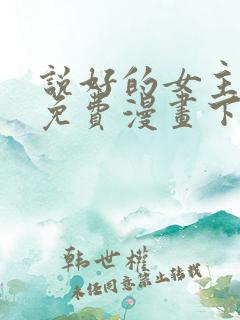 說好的女主
免費漫畫下
韩世權
未任同意禁止转载